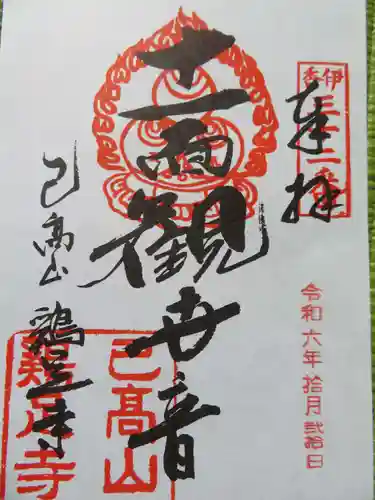 奉拝
伊香三十三番
令和六年拾月弐拾日
十一面観世音
己高山
鶏足寺
己高山
鶏足寺